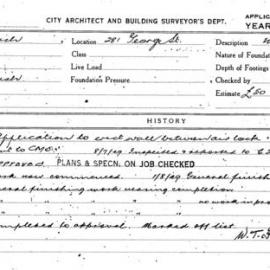 CITY ARCHITECT AND BUILDING SURVEYOR'S DEPT.
APPLIC
YEAR
Location 281 George St.
Description
Class
Nature of Foundat
Live Load
Depth of Footings
Foundation Pressure
Checked by
Estimate £50
HISTORY
Application to erect wall between air lock
to CMO. 8/7/29 Inspected & reported to
APPROVED PLANS & SPECN. ON JOB CHECKED
work now commenced. 1/8/29 General finish
General finishing work nearing completion
no work in
completed to approval. Marked off list
W.T.